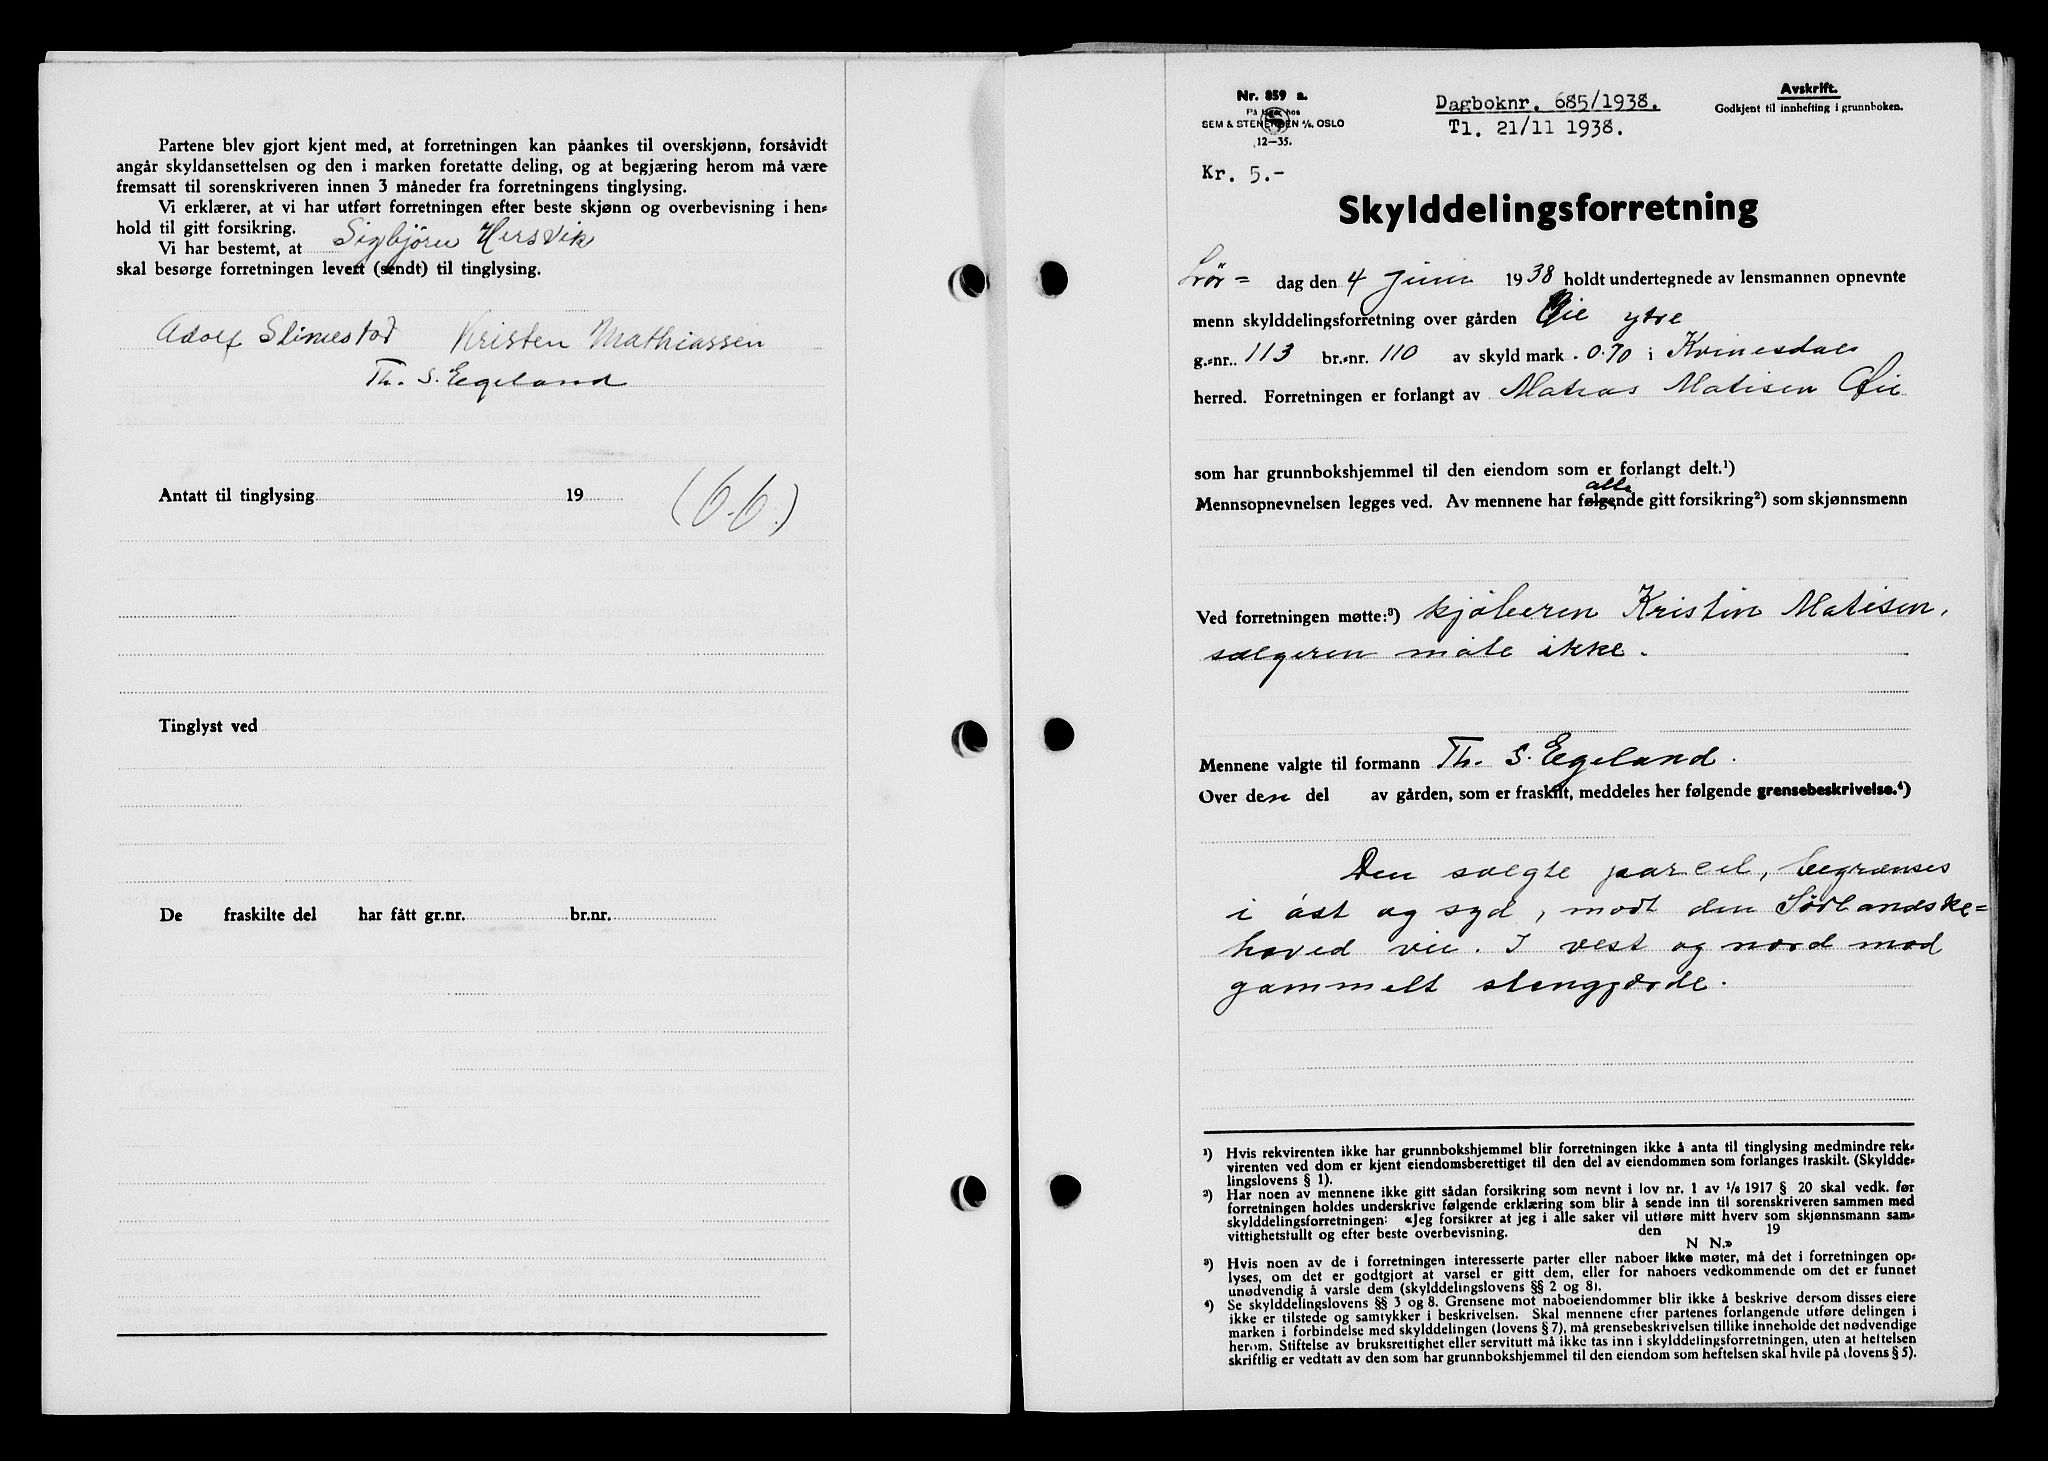 Partene blev gjort kjent med, at forretningen kan påankes til overskjønn, forsåvidt
angår skyldansettelsen og den i marken foretatte deling, og at begjæring herom må være
fremsatt til sorenskriveren innen 3 måneder fra forretningens tinglysing.
Vi erklærer, at vi har utført forretningen efter beste skjønn og overbevisning i hen-
hold til gitt forsikring.
Vi har bestemt, at Sigbjörn Hersvik
skal besørge forretningen levert (sendt) til tinglysing.
Adolf Slimestad Kristen Mathiassen
Th. S. Egeland
Antatt til tinglysing 19
(6.6.)
Tinglyst ved
De fraskilte del har fått gr.nr. br.nr.
Nr. 859 a.
På lager hos
SEM & STENERSEN A/S, OSLO
12—35.
Dagboknr. 685/1938.
Tl. 21/11 1938.
Avskrift.
Godkjent til innhefting i grunnboken.
Kr. 5.-
Skylddelingsforretning
Lör= dag den 4 juni 1938 holdt undertegnede av lensmannen opnevnte
menn skylddelingsforretning over gården Øie ytre
g.-nr. 113 br.-nr. 110 av skyld mark 0.70 i Kvinesdal
herred. Forretningen er forlangt av Matias Matisen Øie
som har grunnbokshjemmel til den eiendom som er forlangt delt.¹)
alle
Mennsopnevnelsen legges ved. Av mennene har følgende gitt forsikring²) som skjønnsmenn
Ved forretningen møtte:³) kjöberen Kristin Matisen,
sælgeren möte ikke.
Mennene valgte til formann Th. S. Egeland.
Over den del av gården, som er fraskilt, meddeles her følgende grensebeskrivelse.⁴)
Den solgte parcel, begrænses
i öst og syd, modt den Sörlandske=
hoved vei. I vest og nord mod
gammelt stengjærde.
¹) Hvis rekvirenten ikke har grunnbokshjemmel blir forretningen ikke å anta til tinglysing medmindre rek-
virenten ved dom er kjent eiendomsberettiget til den del av eiendommen som forlanges fraskilt. (Skyldde-
lingslovens § 1).
²) Har noen av mennene ikke gitt sådan forsikring som nevnt i lov nr. 1 av 1/6 1917 § 20 skal vedk. før
forretningen holdes underskrive følgende erklæring som blir å sende inn til sorenskriveren sammen med
skylddelingsforretningen: «Jeg forsikrer at jeg i alle saker vil utføre mitt hverv som skjønnsmann sam-
vittighetsfullt og efter beste overbevisning. den 19
N N.»
³) Hvis noen av de i forretningen interesserte parter eller naboer ikke møter, må det i forretningen op-
lyses, om det er godtgjort at varsel er gitt dem, eller for naboers vedkommende om det er funnet
unødvendig å varsle dem (skylddelingslovens §§ 2 og 8).
⁴) Se skylddelingslovens §§ 3 og 8. Grensene mot naboeiendommer blir ikke å beskrive dersom disses eiere
ikke er tilstede og samtykker i beskrivelsen. Skal mennene efter partenes forlangende utføre delingen i
marken i forbindelse med skylddelingen (lovens § 7), må grensebeskrivelsen tillike inneholde det nødvendige
herom. Stiftelse av bruksrettighet eller servitutt må ikke tas inn i skylddelingsforretningen, uten at heftelsen
skriftlig er vedtatt av den som har grunnbokshjemmel til den eiendom som heftelsen skal hvile på (lovens § 5).